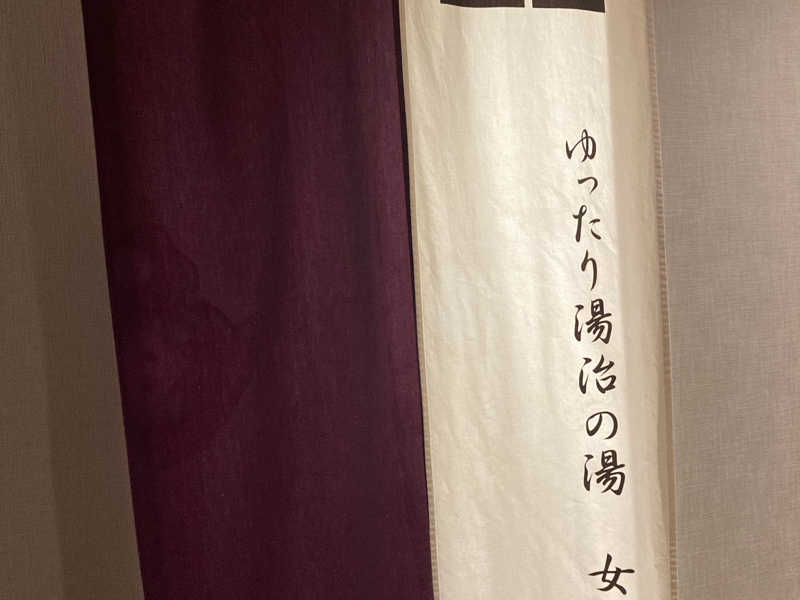 ゆったり湯治の湯 女